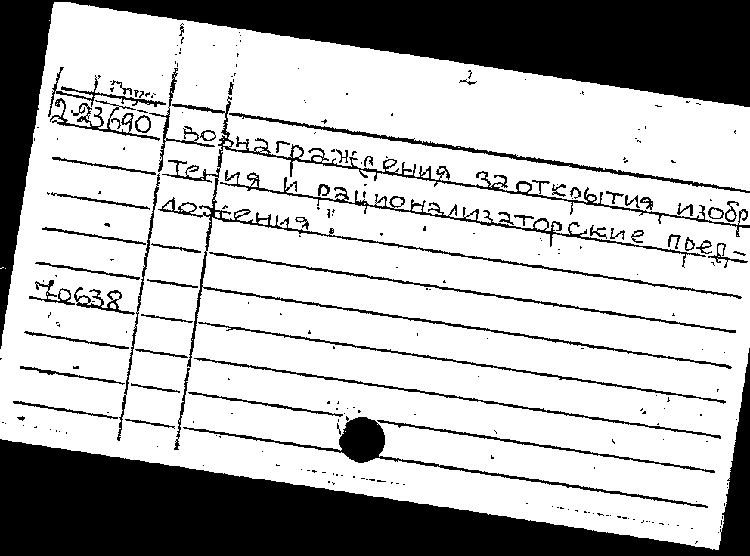 2
2-23690 вознаграждения за открытия, изобр
тения и рационализаторские пред=
ложения
70638